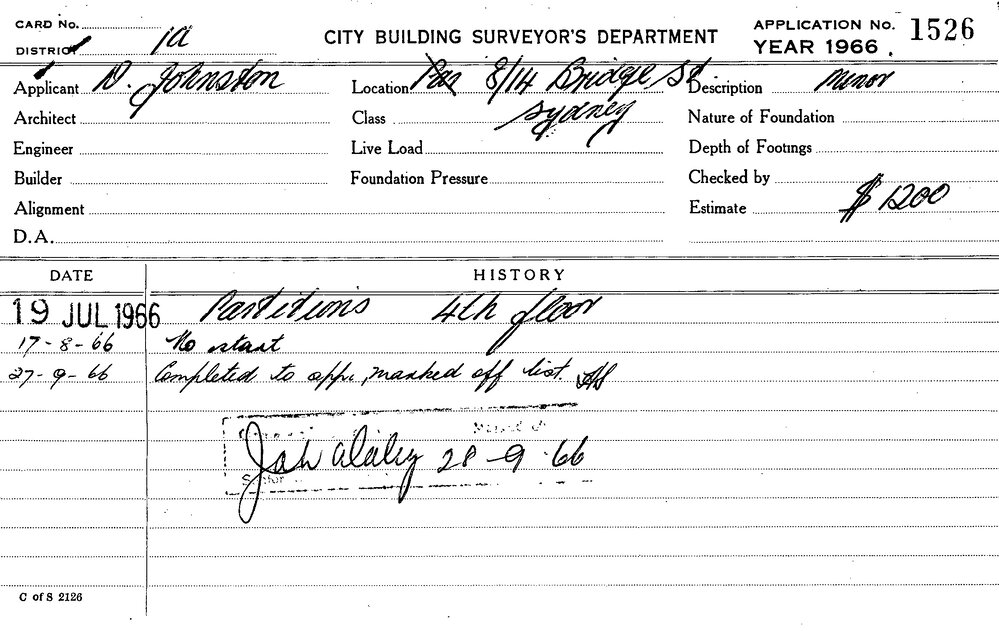 CARD No.
DISTRICT 1a
CITY BUILDING SURVEYOR'S DEPARTMENT
APPLICATION No. 1526
YEAR 1966.
Applicant D. Johnston
Location 8/14 Bridge St
Sydney
Description Minor
Architect
Class
Nature of Foundation
Engineer
Live Load
Depth of Footings
Builder
Foundation Pressure
Checked by
Alignment
Estimate $ 1200
D.A.
DATE HISTORY
19 JUL 1966 Partitions 4th floor
17-8-66 No start
27-9-66 Completed to app., marked off list.
28-9-66
C of S 2126